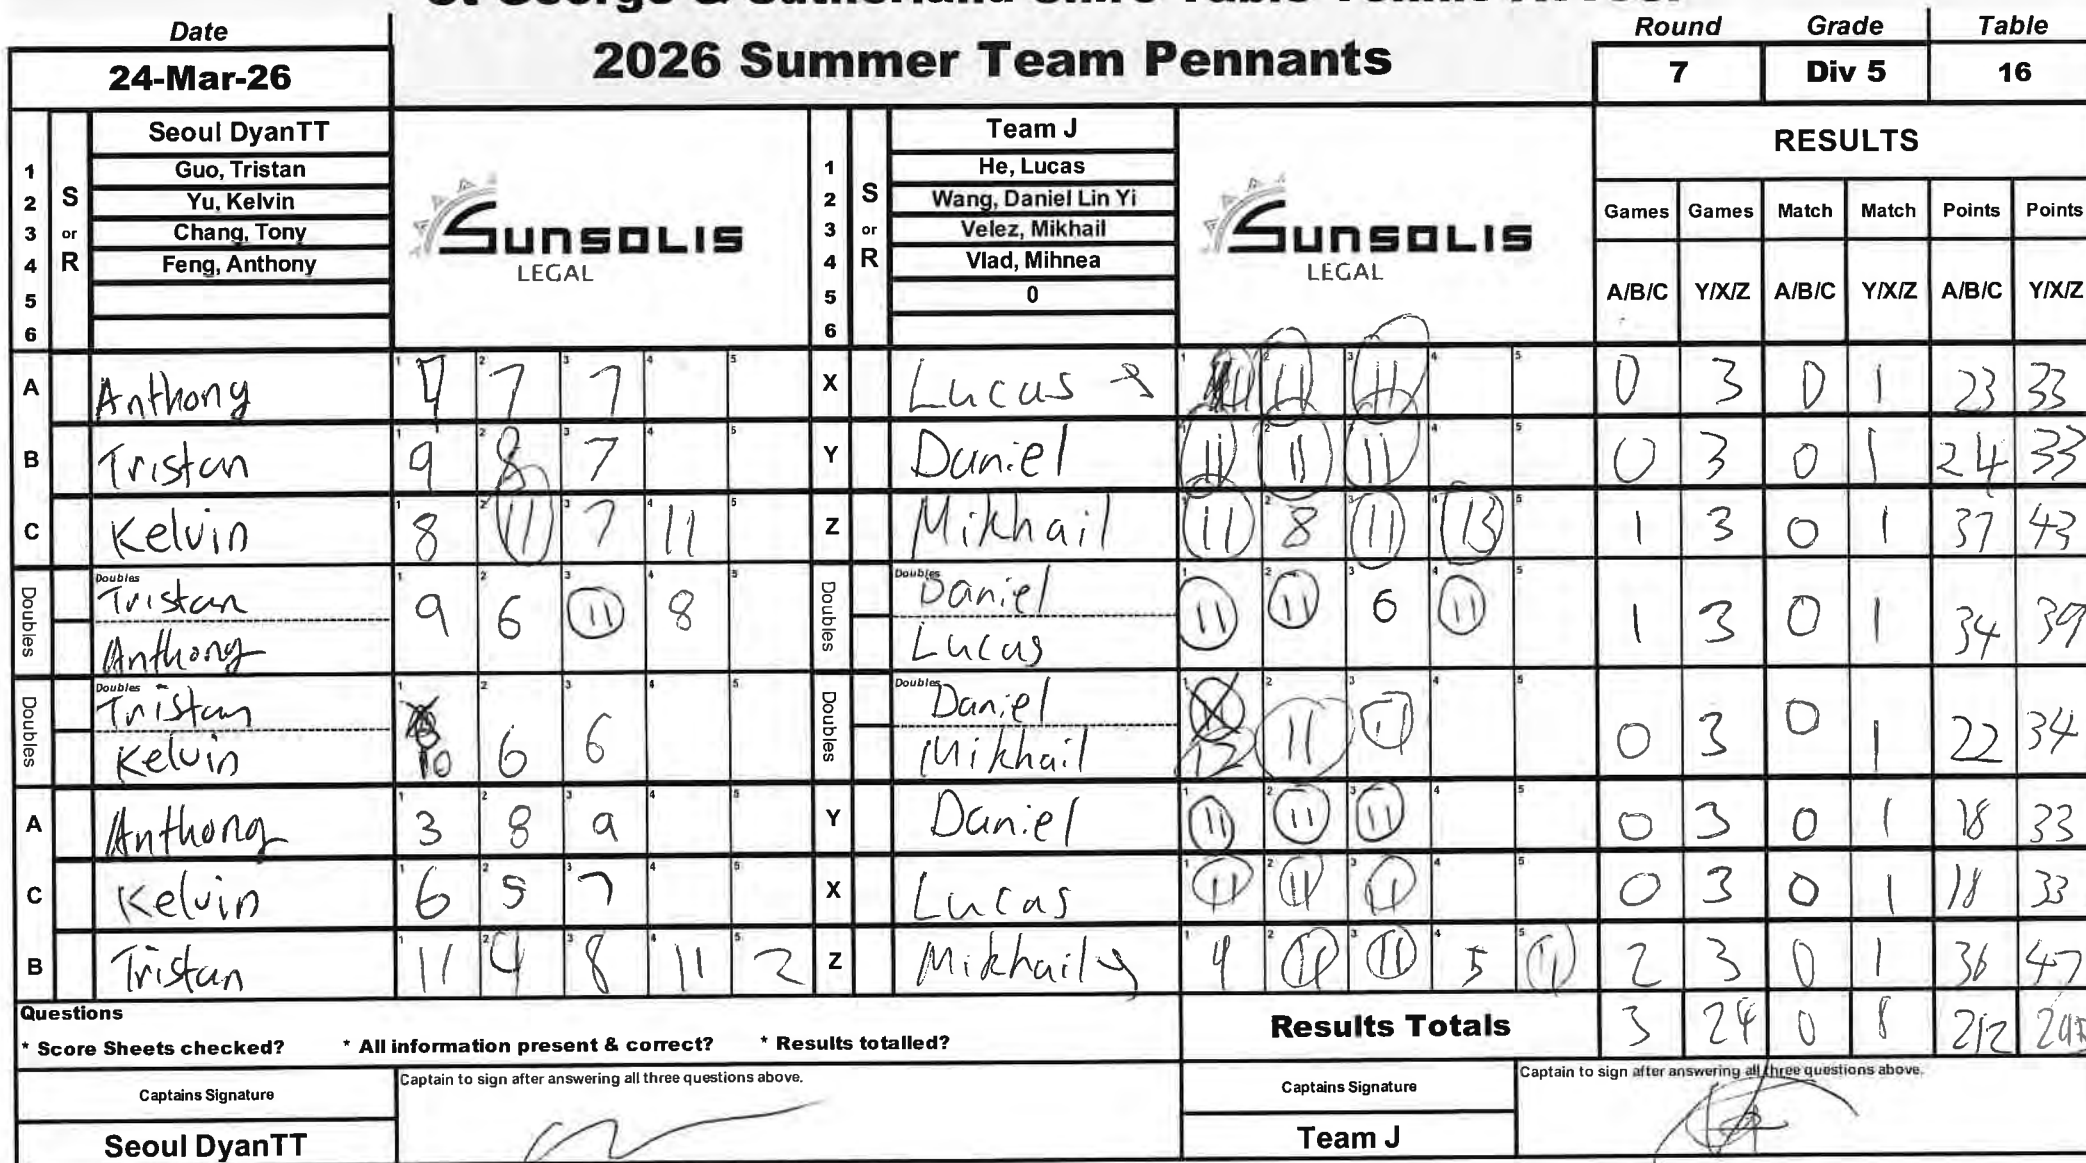 Date
24-Mar-26
2026 Summer Team Pennants
Round Grade Table
7 Div 5 16
Seoul DyanTT
1 Guo, Tristan
2 Yu, Kelvin
3 Chang, Tony
4 Feng, Anthony
5
6
S or R
SUNSOLIS
LEGAL
Team J
1 He, Lucas
2 Wang, Daniel Lin Yi
3 Velez, Mikhail
4 Vlad, Mihnea
5 0
6
S or R
SUNSOLIS
LEGAL
RESULTS
Games Games Match Match Points Points
A/B/C Y/X/Z A/B/C Y/X/Z A/B/C Y/X/Z
A Anthony 7 7 X Lucas 11 11 0 3 0 1 23 33
B Tristan 9 8 7 Y Daniel 11 11 11 0 3 0 1 24 33
C Kelvin 8 11 7 11 Z Mikhail 11 8 11 13 1 3 0 1 37 43
Doubles Tristan Anthony 9 6 11 8 Doubles Daniel Lucas 11 11 6 11 1 3 0 1 34 39
Doubles Tristan Kelvin 10 6 6 Doubles Daniel Mikhail 12 11 11 0 3 0 1 22 34
A Anthony 3 8 9 Y Daniel 11 11 11 0 3 0 1 18 33
C Kelvin 6 5 7 X Lucas 11 11 11 0 3 0 1 18 33
B Tristan 11 4 8 11 2 Z Mikhail 9 11 11 5 11 2 3 0 1 36 47
Questions
* Score Sheets checked? * All information present & correct? * Results totalled?
Results Totals 3 24 0 8 212
Captains Signature
Captain to sign after answering all three questions above.
Seoul DyanTT
Captains Signature
Captain to sign after answering all three questions above.
Team J